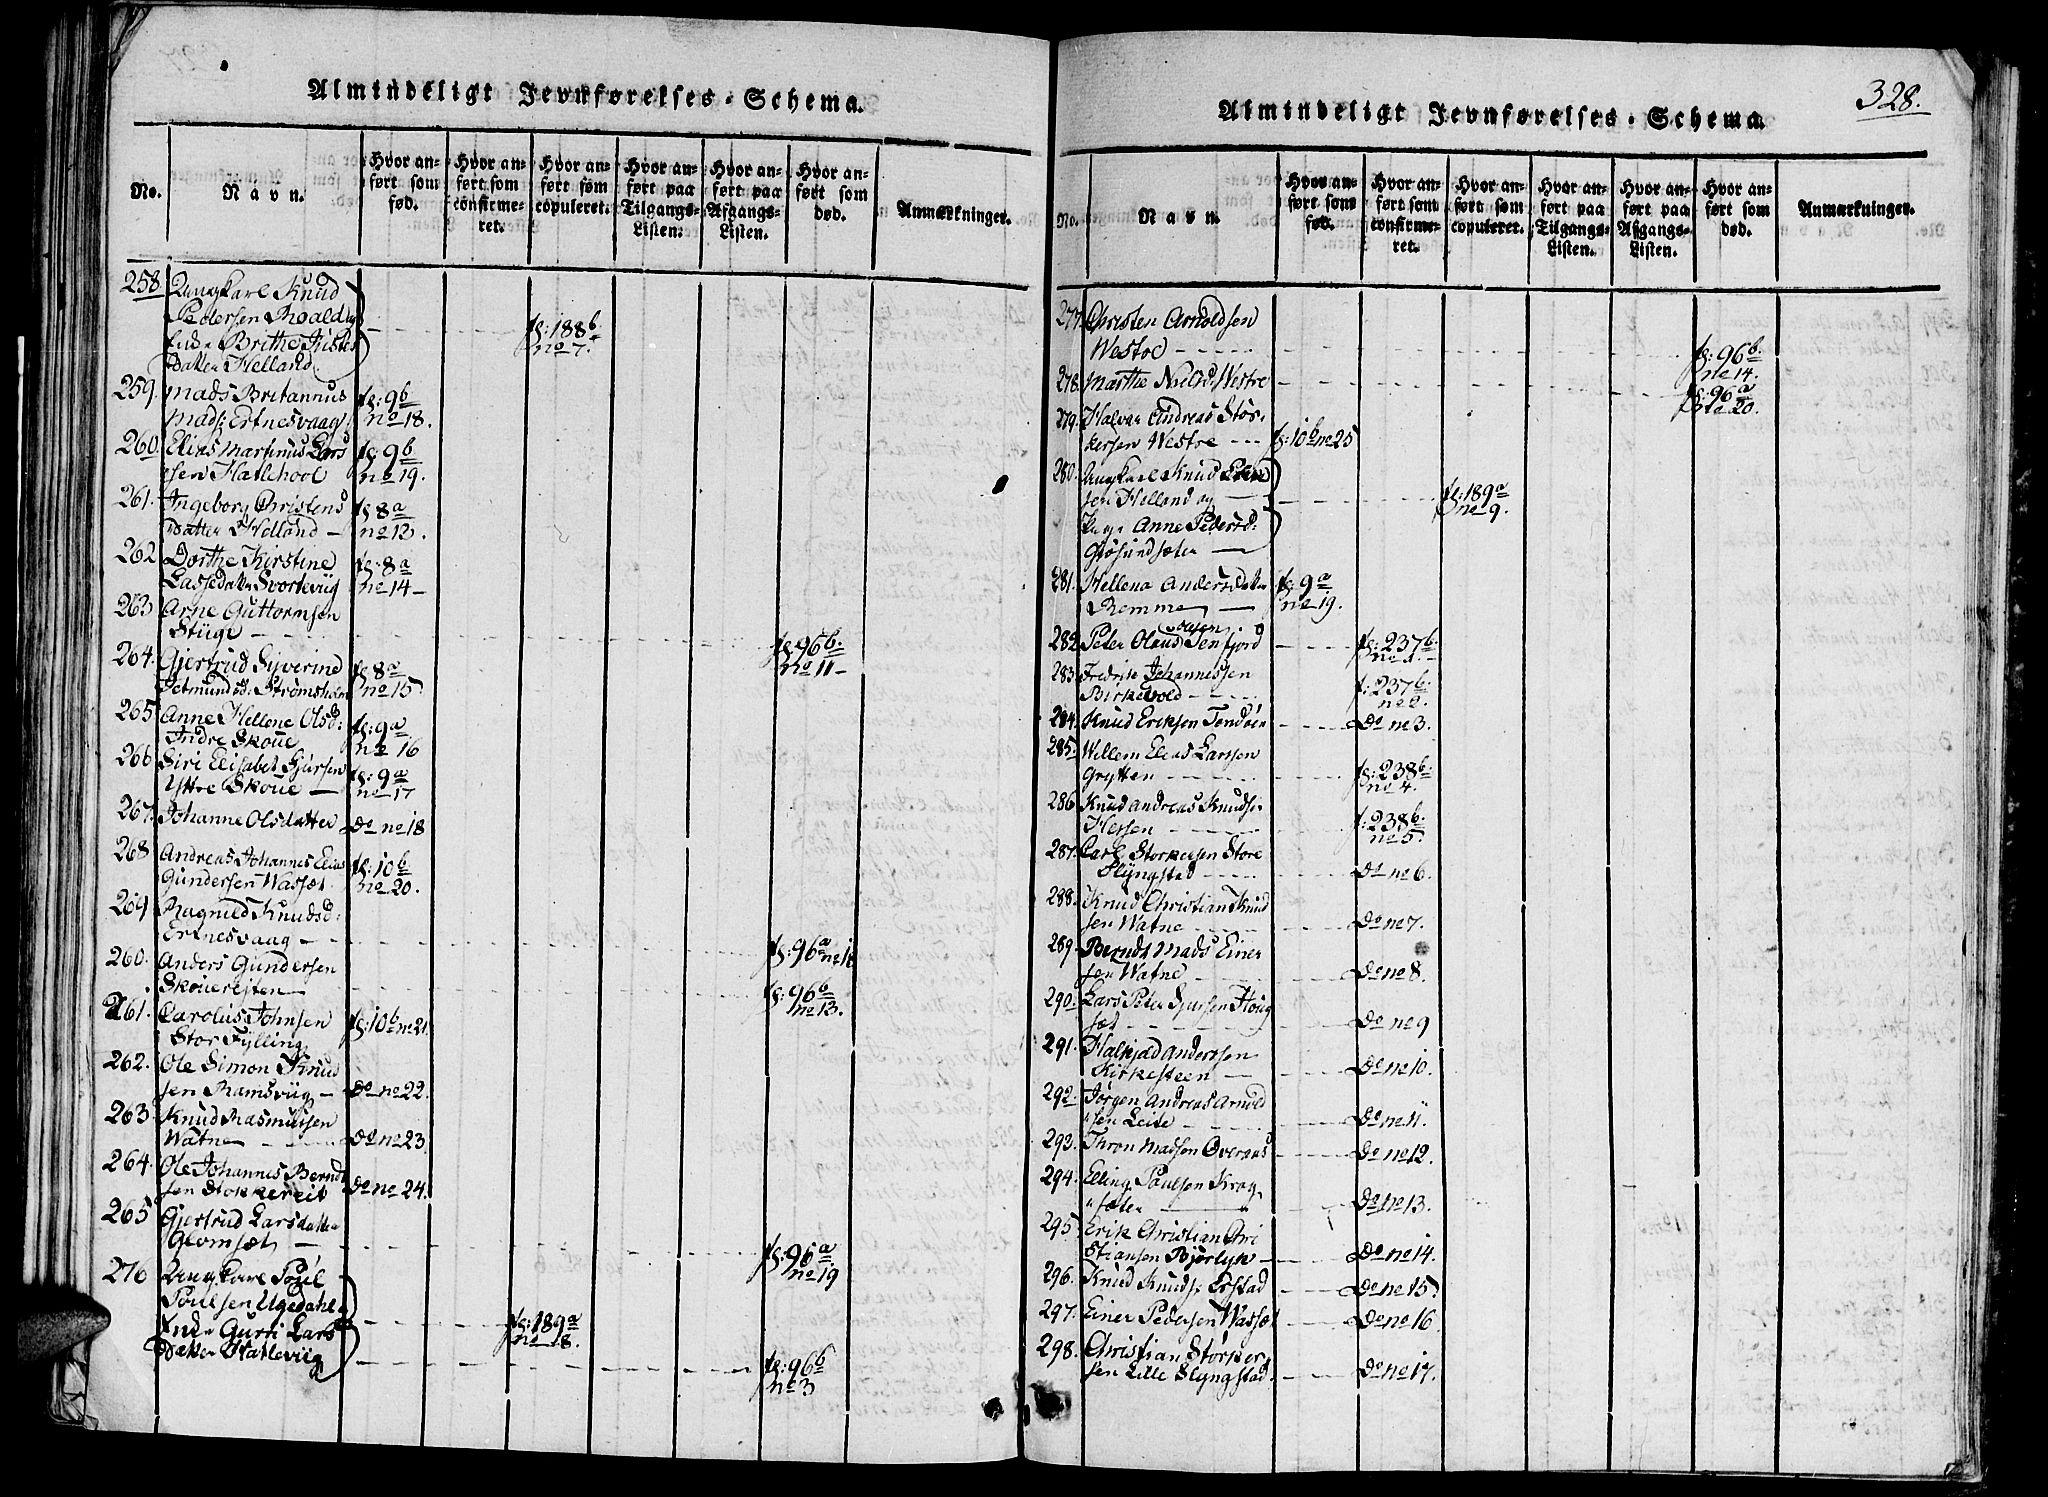 Almindeligt Jevnførelses-Schema.
No.
Navn.
Hvor anført som fød.
Hvor anført som confirmeret.
Hvor anført som copuleret.
Hvor anført paa Tilgangs-Listen.
Hvor anført paa Afgangs-Listen.
Hvor anført som død.
Anmærkninger.
258. Ungkarl Knud
Pedersen Roald og
Enke Brithe
Datter Helland. fg: 188b no 7.
259. Mads Britannus fg: 9b
Mads: Ertnesvaag no 18.
260. Elias Martinus Lars fg: 9b
sen Hatlehool no 19.
261. Ingeborg Christens fg: 8a
Datter Helland – no 13.
262 Dorthe Kirstine fg: 8a
Lassedatter Svorteviig no 14–
263 Arne Guttormsen
Stüge fg: 96b no 11–
264. Gjertrud Syverine fg: 8a
Jetmundsd: Strømsholm no 15
265 Anne Hellene Olsd: fg: 9a
Indre Skoue no 16
266 Siri Elisabet Sjursen fg: 9a
Yttre Skoue – no 17
267. Johanne Olsdatter Do no 18
268 Andreas Johannes Elias fg: 10b
Gundersen Wassæt no 20.
269 Ragnild Knudsd:
Ertnesvaag – fg: 96a
260. Anders Gundersen
Skouereiten fg: 96b no 13.
261. Carolus Johnsen fg: 10b no 21.
Stor Fylling
262. Ole Simon Knud
sen Ramsviig – Do no 22.
263 Knud Rasmussen
Watne Do no 23.
264. Ole Johannes Bernd
sen Stokkereit Do no 24.
265 Gjertrud Larsdatter
Glomsæt – fg: 96a no 19
276 Ungkarl Poül
Poulsen Ugedahl og
Enke Gurri Lars fg: 189a no 18.
Datter Hatleviig fg: 96b no 3
328.
Almindeligt Jevnførelses-Schema.
No.
Navn.
Hvor anført som fød.
Hvor anført som confirmeret.
Hvor anført som copuleret.
Hvor anført paa Tilgangs-Listen.
Hvor anført paa Afgangs-Listen.
Hvor anført som død.
Anmærkninger.
277. Christen Arnoldsen
Westoe fg: 96b no 14.
278. Marthe Nielsd: Westre fg: 96a no 20.
279. Halvar Andreas Stor
kersen Westre fg: 10b no 25
280. Ungkarl Knud
sen Helland og fg: 189a no 9.
Anne Pedersd:
Gjøsundsæter
281. Hellena Andersdatter fg: 9a
Remme – no 19.
282 Peter Olaus Olsen Tenfjord fg: 237b no 1.
283. Fredrik Johannessen
Birkevold f: 237b no 2.
284. Knud Eriksen Tendøen Do no 3.
285. Willem Elias Larssen
Grytten fg: 238b no 4.
286 Knud Andreas Knuds:
Hessen f: 238b no 5.
287. Carl Storkersen Store
Slyngstad Do no 6.
288. Knud Christian Knud
sen Watne Do no 7.
289. Bernds Mads Einer
sen Watne Do no 8.
290. Lars Peter Sjursen Houg
sæt Do no 9
291. Halkjæld Anderssen
Kirkesteen Do no 10.
292. Jørgen Andreas Arnold
sen Leite Do no 11.
293. Thron Madsen Overaas Do no 12.
294. Elling Paulsen Krog
sæter Do no 13.
295 Erik Christian Chri
stiansen Bjørlyk Do no 14.
296. Knud Knuds: Erstad Do no 15.
297. Einer Pedersen Wassæt Do no 16
298. Christian Storker
sen Lille Slyngstad. Do no 17.